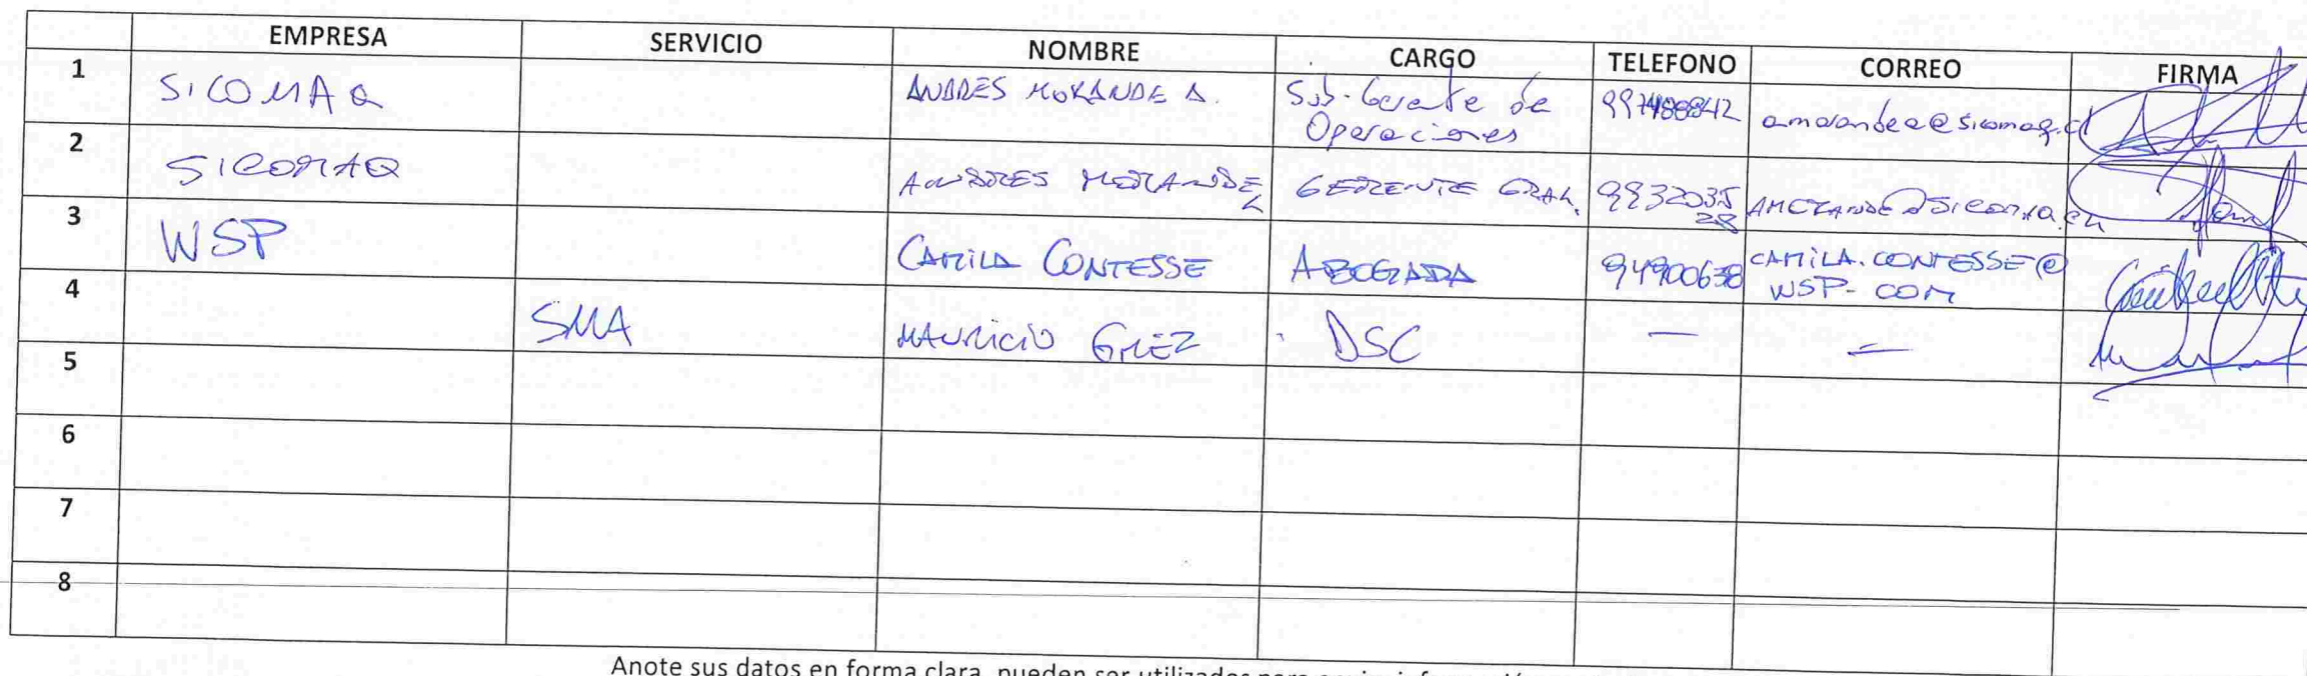 EMPRESA SERVICIO NOMBRE CARGO TELEFONO CORREO FIRMA
1 SICOMAQ ANDRES MORANDE A. Sub-Gerente de Operaciones amorandea@sicomaq.cl
2 SICOMAQ ANDRES MORANDE L GERENTE GRAL. 9932035 28
3 WSP CAMILA CONTESSE ABOGADA CAMILA.CONTESSE@ WSP-COM
4 SMA MAURICIO GREZ DSC — —
5
6
7
8
Anote sus datos en forma clara, pueden ser utilizados para